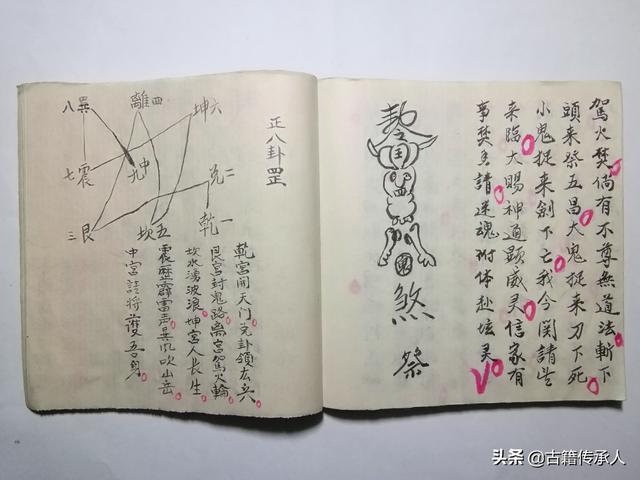 駕火焚倘有不尊無道法斬下
頭来祭五昌大鬼捉来刀下死
小鬼捉来劍下亡我今関請
来臨大賜神通顯威灵信家有
事焚香請迷魂附体赴坛灵
煞
祭
正八卦罡
八巽
離四
坤六
七震
中九
兌二
三艮
坎五
乾一
乾宮開天門兌卦領兵
艮宮封鬼路离宮駕火輪
坎水湧波浪坤宮人長生
震霹雷声巽風吹山岳
中宮諸將護吾身
头条 @古籍传承人